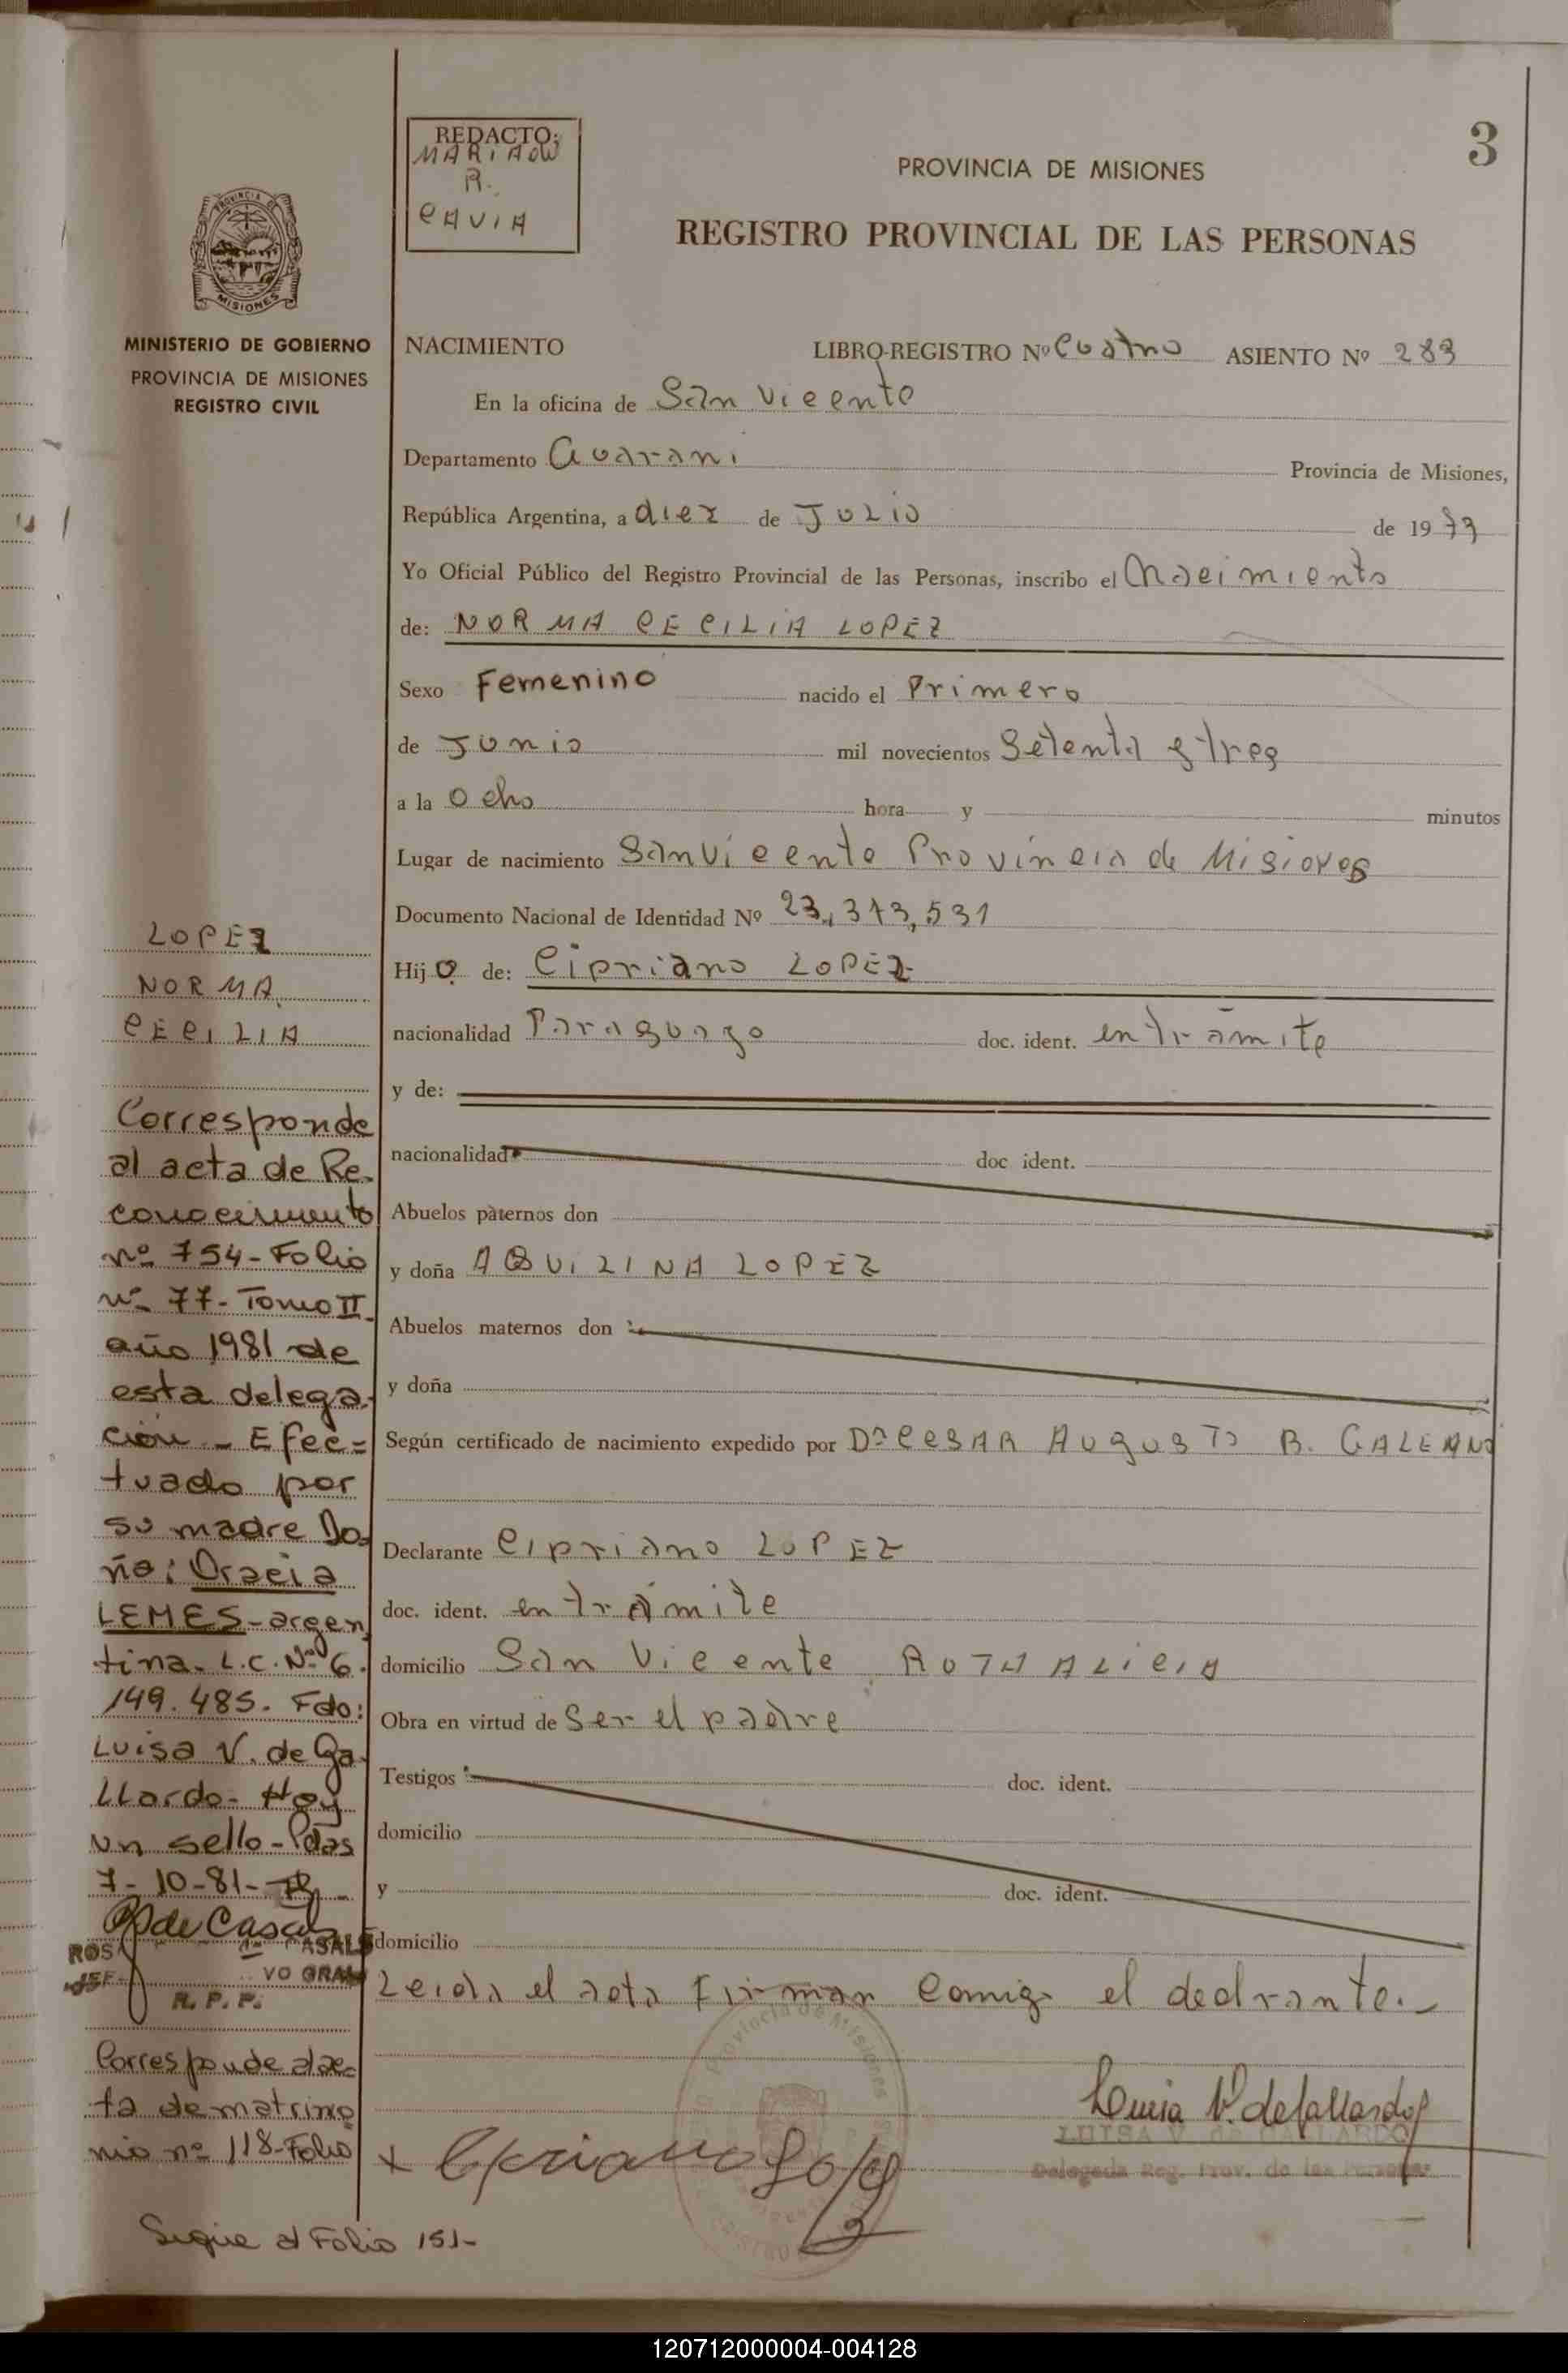 3
REDACTO:
MARIAOW
R.
CAVIA
PROVINCIA DE MISIONES
REGISTRO PROVINCIAL DE LAS PERSONAS
PROVINCIA DE
MISIONES
MINISTERIO DE GOBIERNO
PROVINCIA DE MISIONES
REGISTRO CIVIL
NACIMIENTO LIBRO-REGISTRO Nº Cuatro ASIENTO Nº 283
En la oficina de San Vicente
Departamento Guarani Provincia de Misiones,
República Argentina, a diez de Julio de 1973
Yo Oficial Público del Registro Provincial de las Personas, inscribo el Nacimiento
de: NORMA CECILIA LOPEZ
Sexo Femenino nacido el Primero
de Junio mil novecientos Setenta y tres
a la Ocho hora y minutos
Lugar de nacimiento San Vicente Provincia de Misiones
Documento Nacional de Identidad Nº 23,373,531
Hij a de: Cipriano LOPEZ
nacionalidad Paraguayo doc. ident. en trámite
y de:
nacionalidad doc ident.
Abuelos paternos don
y doña AQUILINA LOPEZ
Abuelos maternos don
y doña
Según certificado de nacimiento expedido por Dr CESAR AUGUSTO B. GALEANO
Declarante Cipriano LOPEZ
doc. ident. en trámite
domicilio San Vicente RUTA ALICIA
Obra en virtud de Ser el padre
Testigos doc. ident.
domicilio
y doc. ident.
domicilio
Leida el acta Firman Comigo el declarante.-
LOPEZ
NORMA
CECILIA
Corresponde
al acta de Re-
conocimiento
nº 754-Folio
nº 77-Tomo II
año 1981 de
esta delega-
ción - Efec=
tuado por
su madre Do-
ña: Oracia
LEMES-argen
tina. L.C. Nº 6.
149.485. Fdo:
Luisa V. de Ga-
LLardo- Hay
un sello-Pdas
7-10-81-
R. P. P.
Corresponde al ac-
ta de matrimo
nio nº 118-Folio
Sigue al Folio 151-
Cipriano Lopez
Luisa V. de Gallardo
LUISA V. de GALLARDO
Delegada Reg. Prov. de las Personas
Provincia de Misiones
120712000004-004128